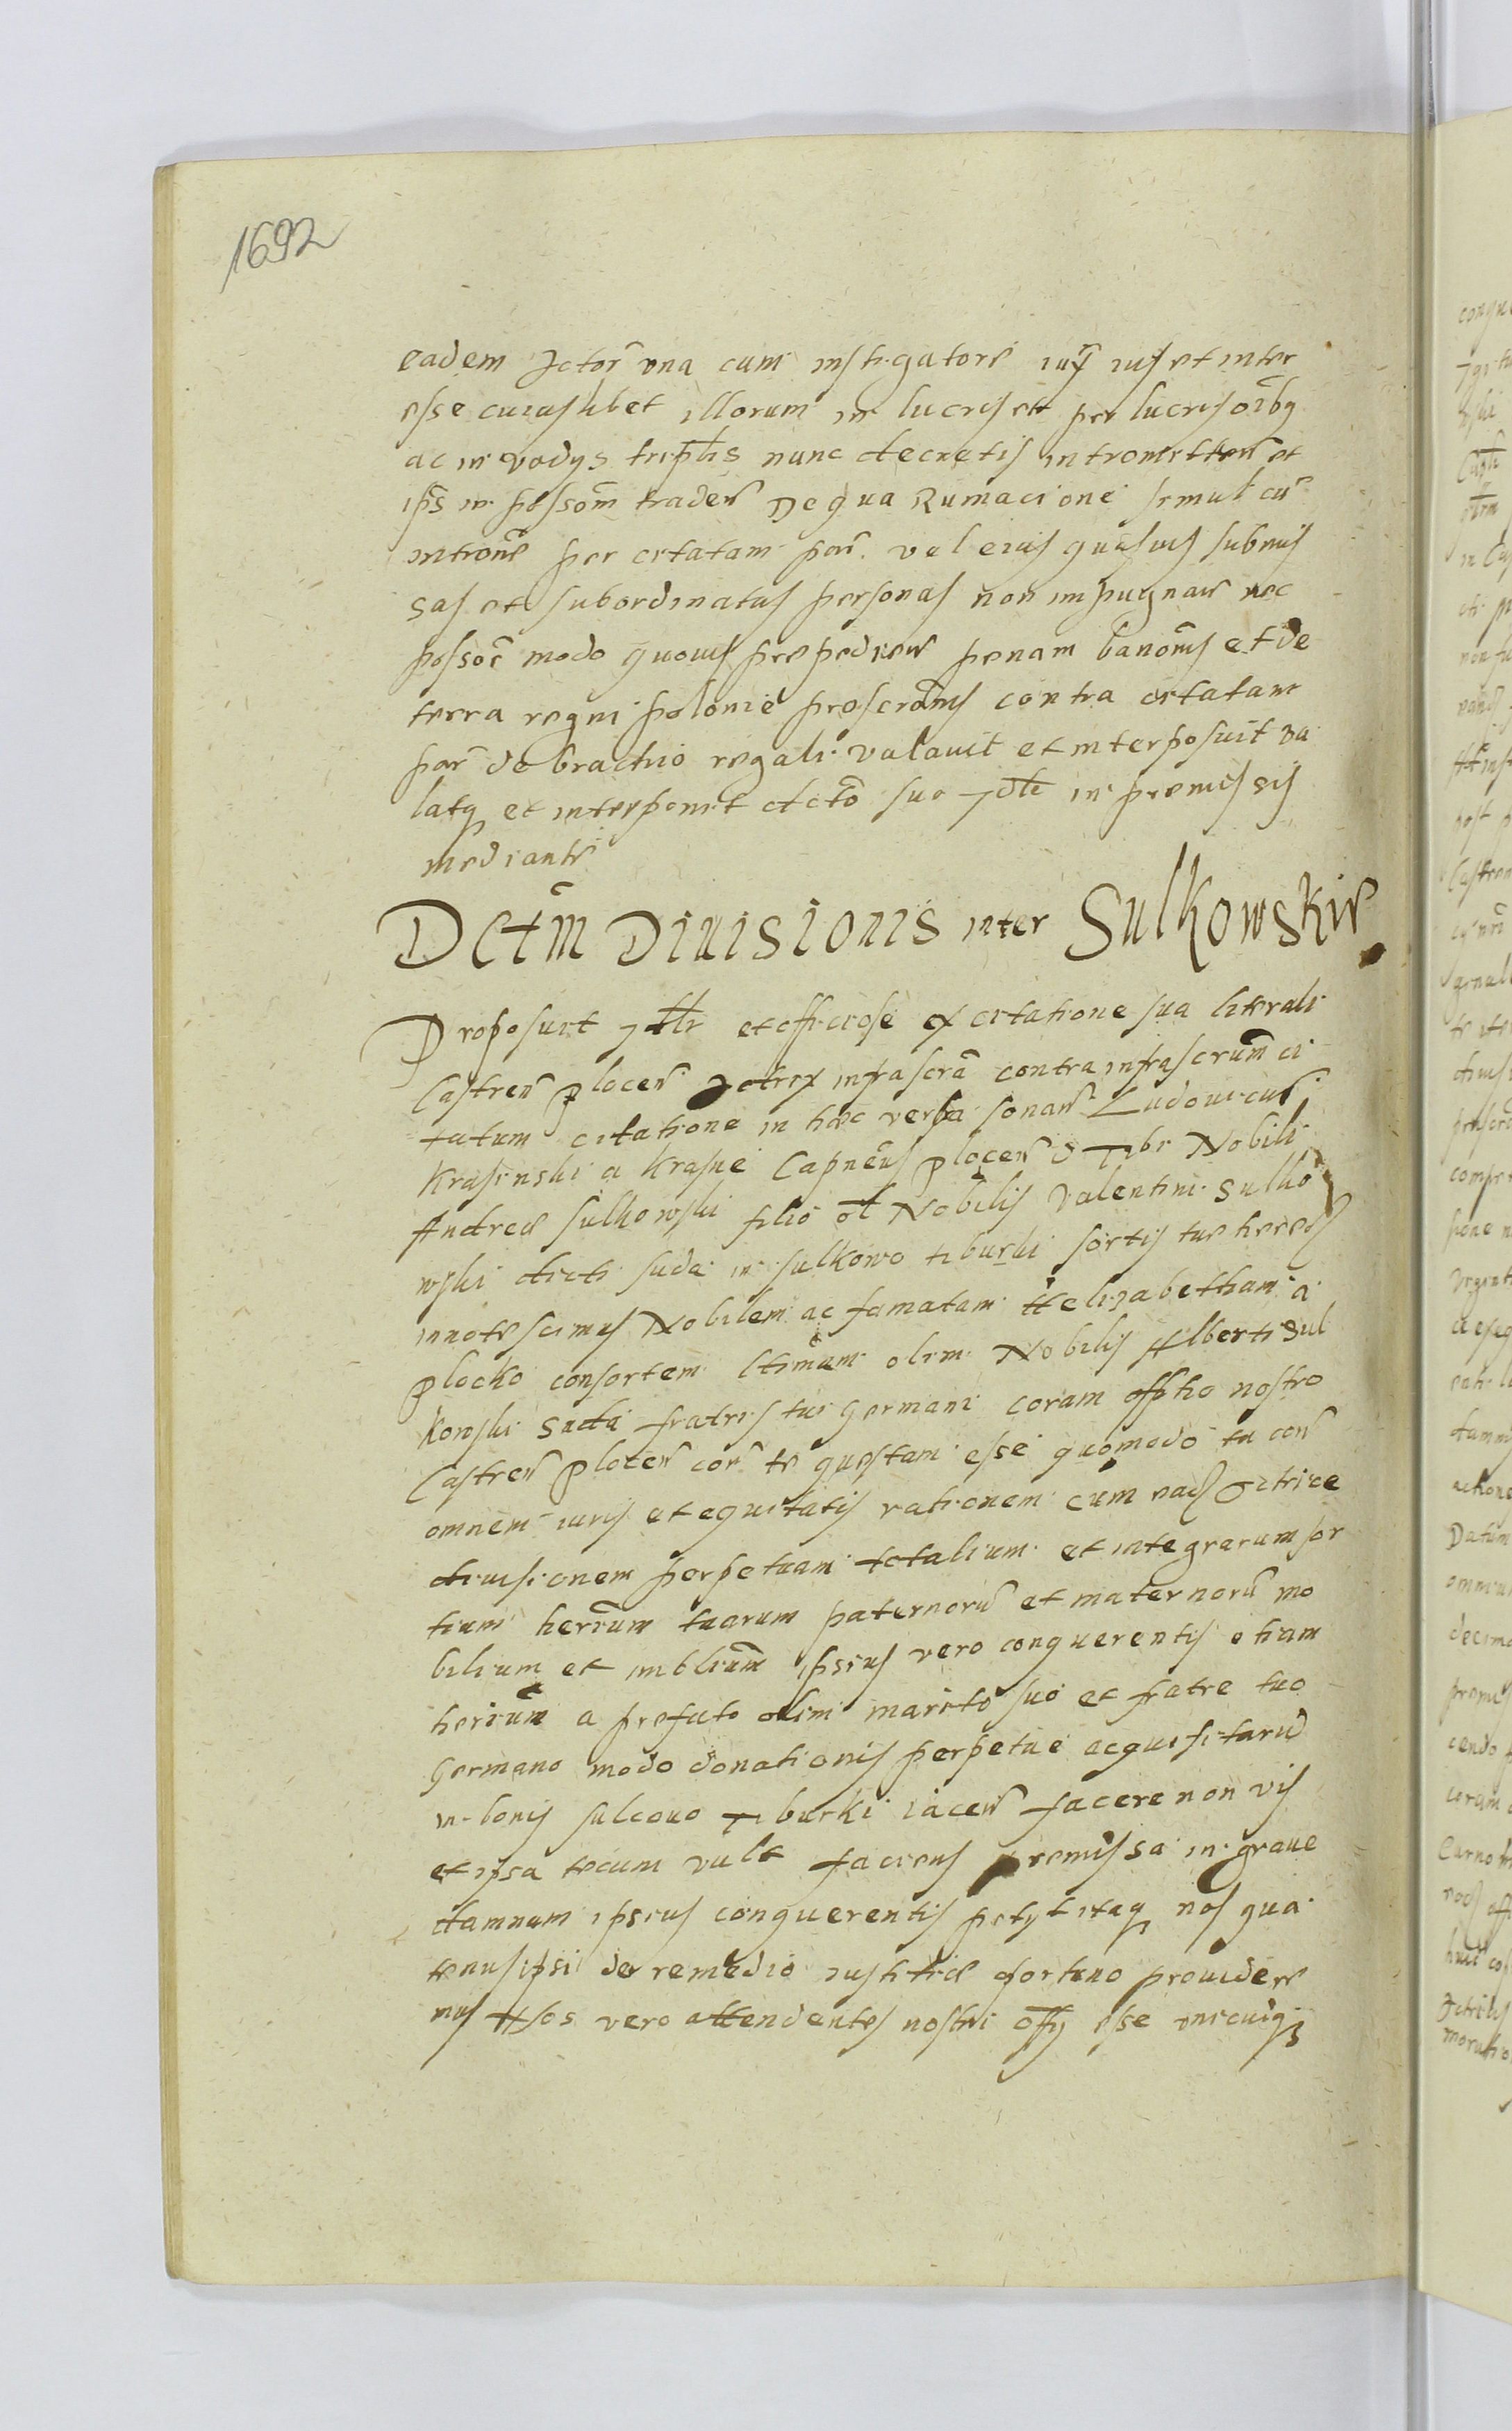 1692
eadem Actor una cum instigatore iuxta ius et inter
esse cuiuslibet illorum in lucris et per lucris oibq
ac in vadys triplis nunc decretis intromitten et
ips in possom traden De qua Rumacione simul cu
introne per citatam par vel eius quasvis submis
sas et subordinatas personas non impugnan nec
possor modo quovis prepedien penam banonis et de
terra regni polonie proscronis contra citatam
par de brachio regali valavit et interposuit va
latq et interponit dcto suo Jdli in premissis
mediante
Dctm Diuisionis inter Sulkowskie
Proposuit Jdlr et officiose ex citatione sua literali
Castren Plocen Actrix infrascra contra infrascrum ci
tatum citatione in hec verba sonan Ludouicus
Krasinski a Krasne Capneus Plocen Tibi Nobili
Andree Sulkowski filio ol Nobilis Valentini Sulko
wski dicti suda in Sulkowo tiburki sortis tue hered
innotescimus Nobilem ac famatam Helizabetham a
Plocko consortem ltimam olim Nobilis Alberti Sul
kowski Sada fratris tui germani coram offtio nostro
Castren Plocen con te questam esse quomodo tu con
omnem iuris et equitatis rationem cum ead Actrice
diuisionem perpetuam totalium et integrarum sor
tium herium tuarum paternoru et maternoru mo
bilium et imblium ipsius vero conquerentis etiam
herium a prefato olim marito suo et fratre tuo
Germano modo donationis perpetue acquisitaru
in bonis Sulcouo Tiburki iacen facere non vis
et ipsa tecum vult faciens premissa in graue
damnum ipsius conquerentis petyt itaq nos qua
tenus ipsi de remedio iustitie oportuno prouidere
mus Nos vero attendentes nostri offy esse unicuiq